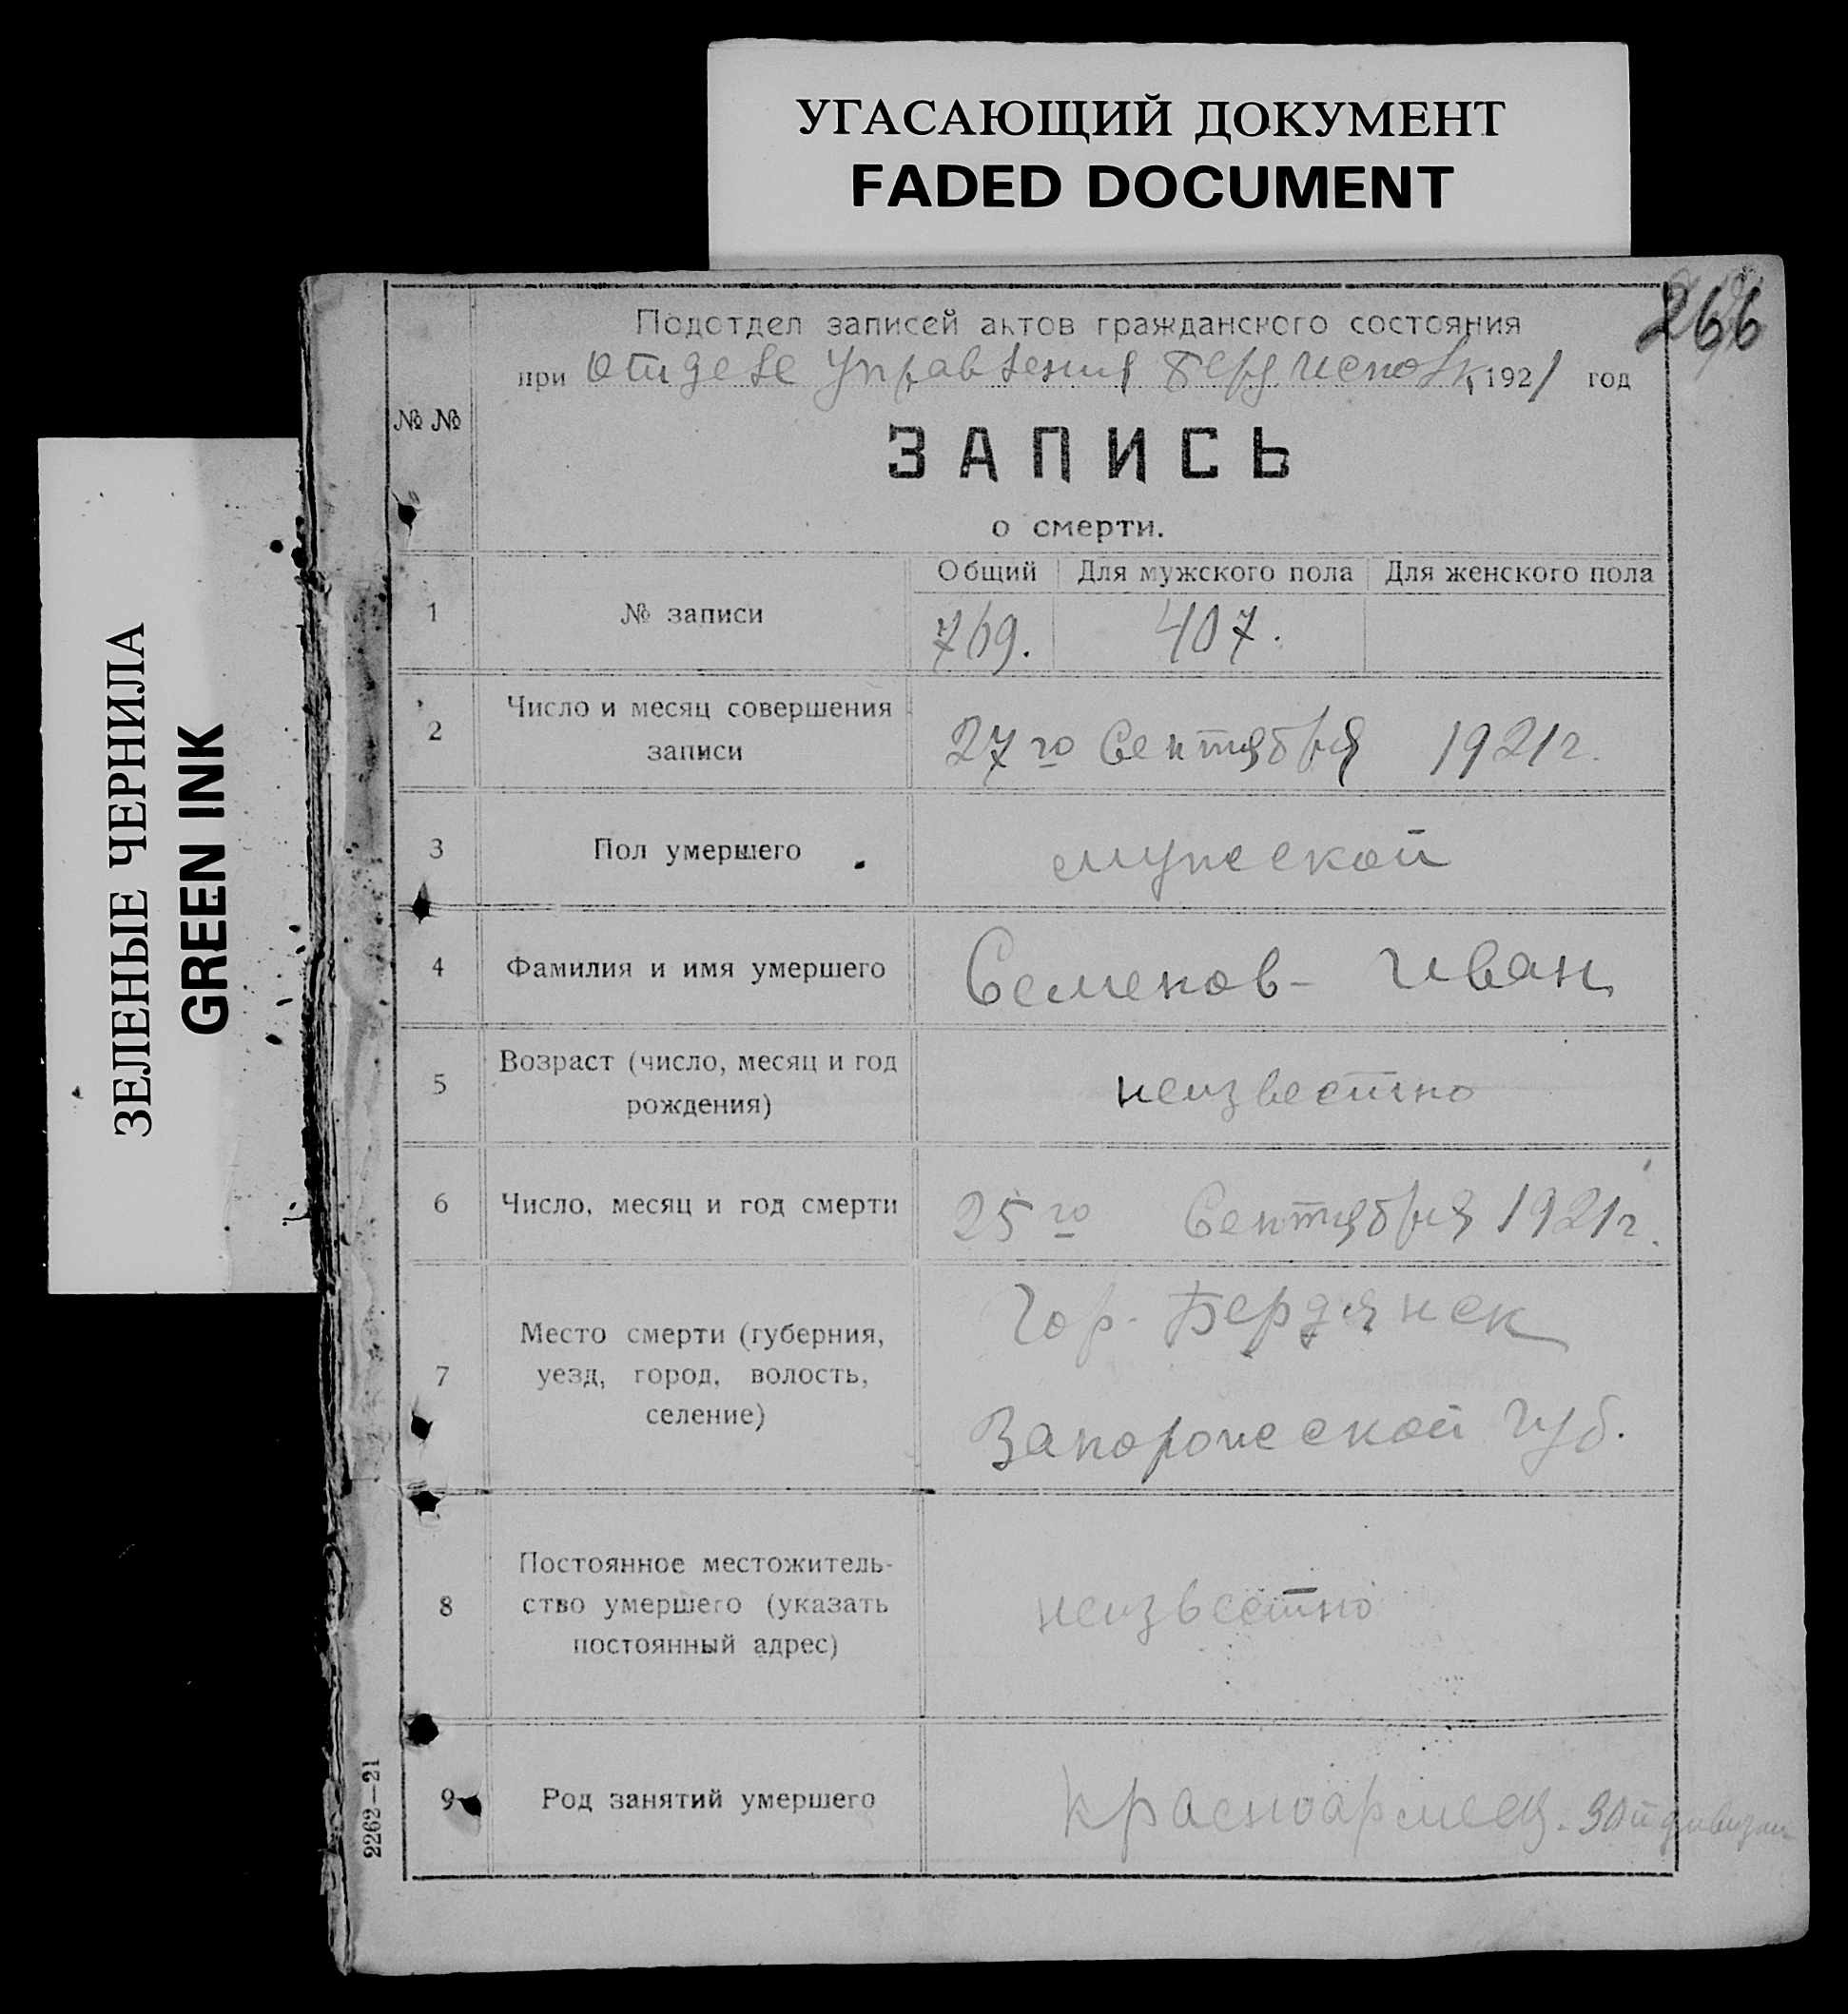 УГАСАЮЩИЙ ДОКУМЕНТ
FADED DOCUMENT
ЗЕЛЕНЫЕ ЧЕРНИЛА
GREEN INK
266
Подотдел записей актов гражданского состояния
при Отделе Управления Берд. Исполк, 1921 год
№ №
ЗАПИСЬ
о смерти.
Общий Для мужского пола Для женского пола
1 № записи 769. 407.
2 Число и месяц совершения
записи 27го Сентября 1921г.
3 Пол умершего мужеской
4 Фамилия и имя умершего Семенов - Иван
5 Возраст (число, месяц и год
рождения) неизвестно
6 Число, месяц и год смерти 25го Сентября 1921г.
7 Место смерти (губерния,
уезд, город, волость,
селение)
Гор. Бердянск
Запорожской Губ.
8 Постоянное местожитель-
ство умершего (указать
постоянный адрес)
неизвестно
9 Род занятий умершего Красноармеец. 30й дивизии
2262—21